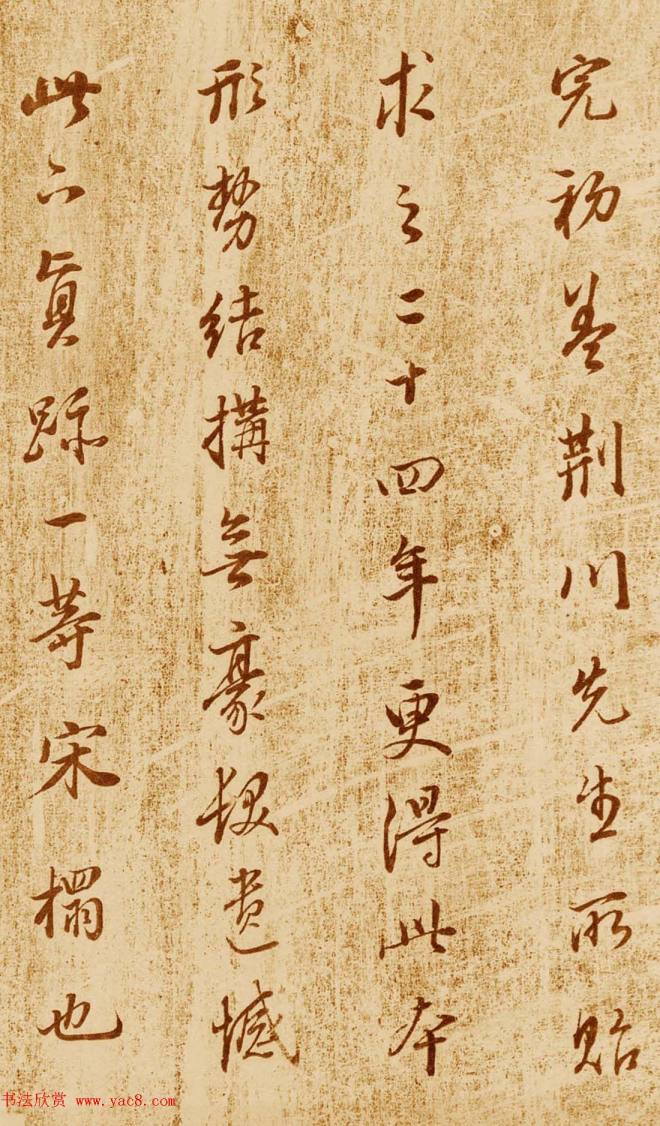 完初盖荆川先生所貽
求之二十四年更得此本
形勢結搆無豪髮遺憾
此下真跡一等宋榻也
书法欣赏 www.yac8.com